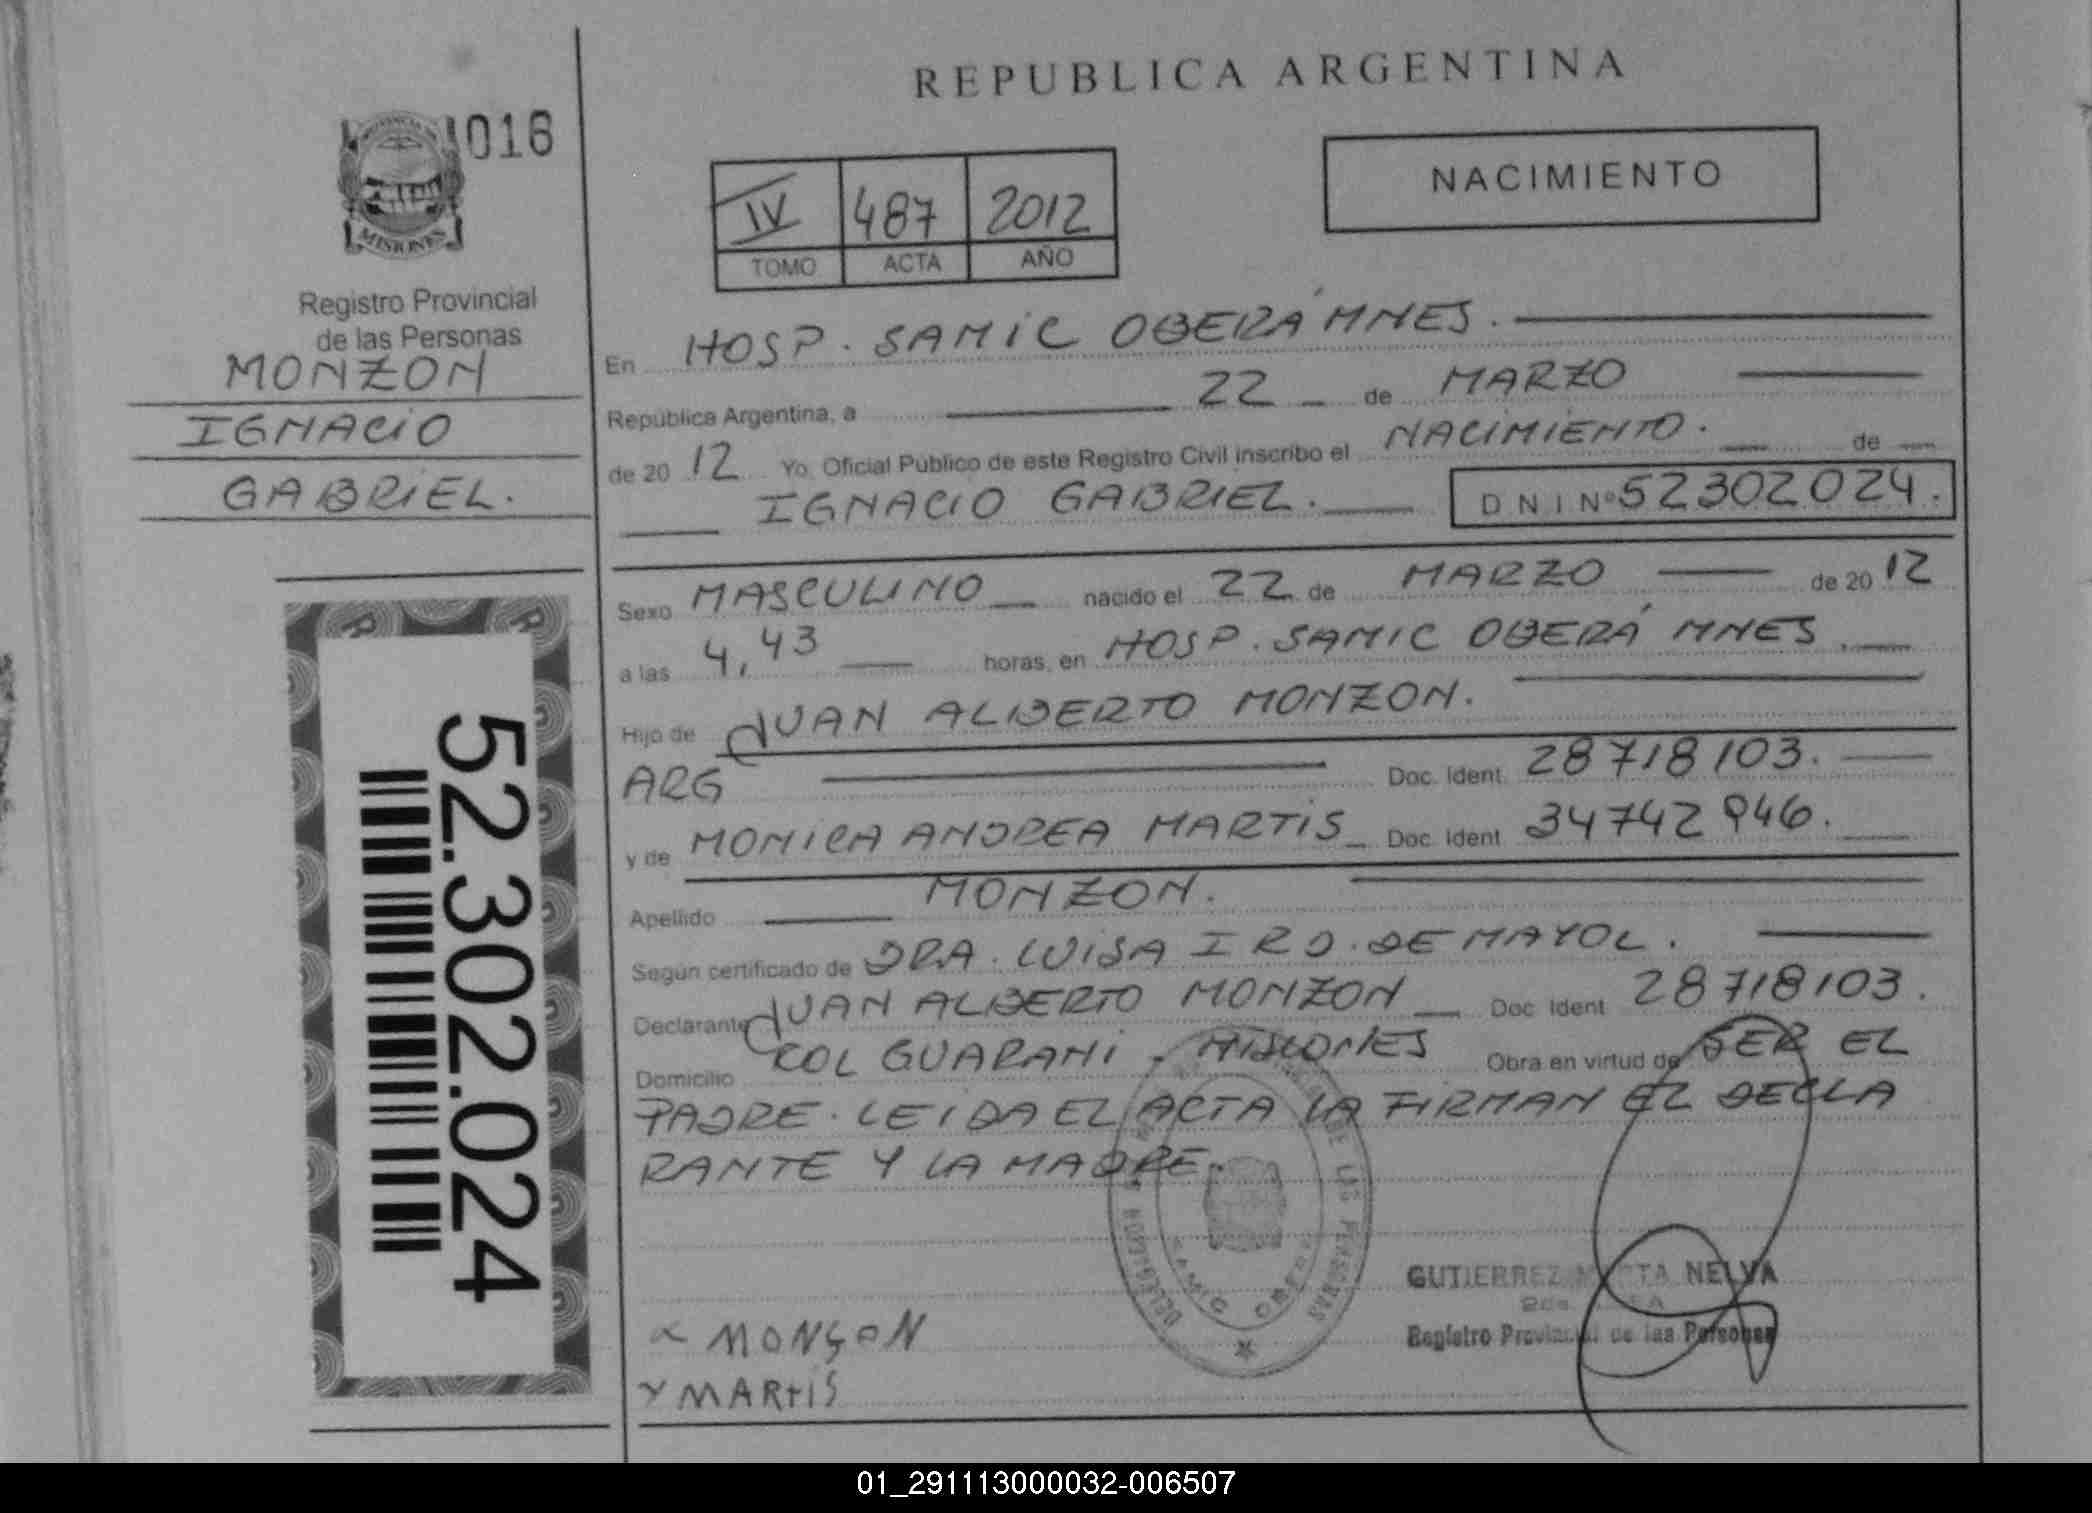 REPUBLICA ARGENTINA
016
MISIONES
Registro Provincial
de las Personas
MONZON
IGNACIO
GABRIEL.
52.302.024
IV 487 2012
TOMO ACTA AÑO
NACIMIENTO
En HOSP. SAMIC OBERÁ MNES.
República Argentina, a 22 de MARZO
de 20 12 Yo, Oficial Público de este Registro Civil inscribo el NACIMIENTO. de
IGNACIO GABRIEL. DNI Nº 52302024.
Sexo MASCULINO nacido el 22 de MARZO de 20 12
a las 4,43 horas, en HOSP. SAMIC OBERÁ MNES.
Hijo de JUAN ALBERTO MONZON.
ARG Doc. Ident. 28718103.
y de MONICA ANDREA MARTIS Doc. Ident. 34742946.
Apellido MONZON.
Según certificado de DRA. LUISA I R D. DE MAYOL.
Declarante JUAN ALBERTO MONZON Doc. Ident. 28718103.
Domicilio COL GUARANI. MISIONES Obra en virtud de SER EL
PADRE. LEIDA EL ACTA LA FIRMAN EL DECLA
RANTE Y LA MADRE.
DE LAS PERSONAS
GUTIERREZ NELVA
Registro Provincial de las Personas
MONSON
Y MARTIS
01_291113000032-006507